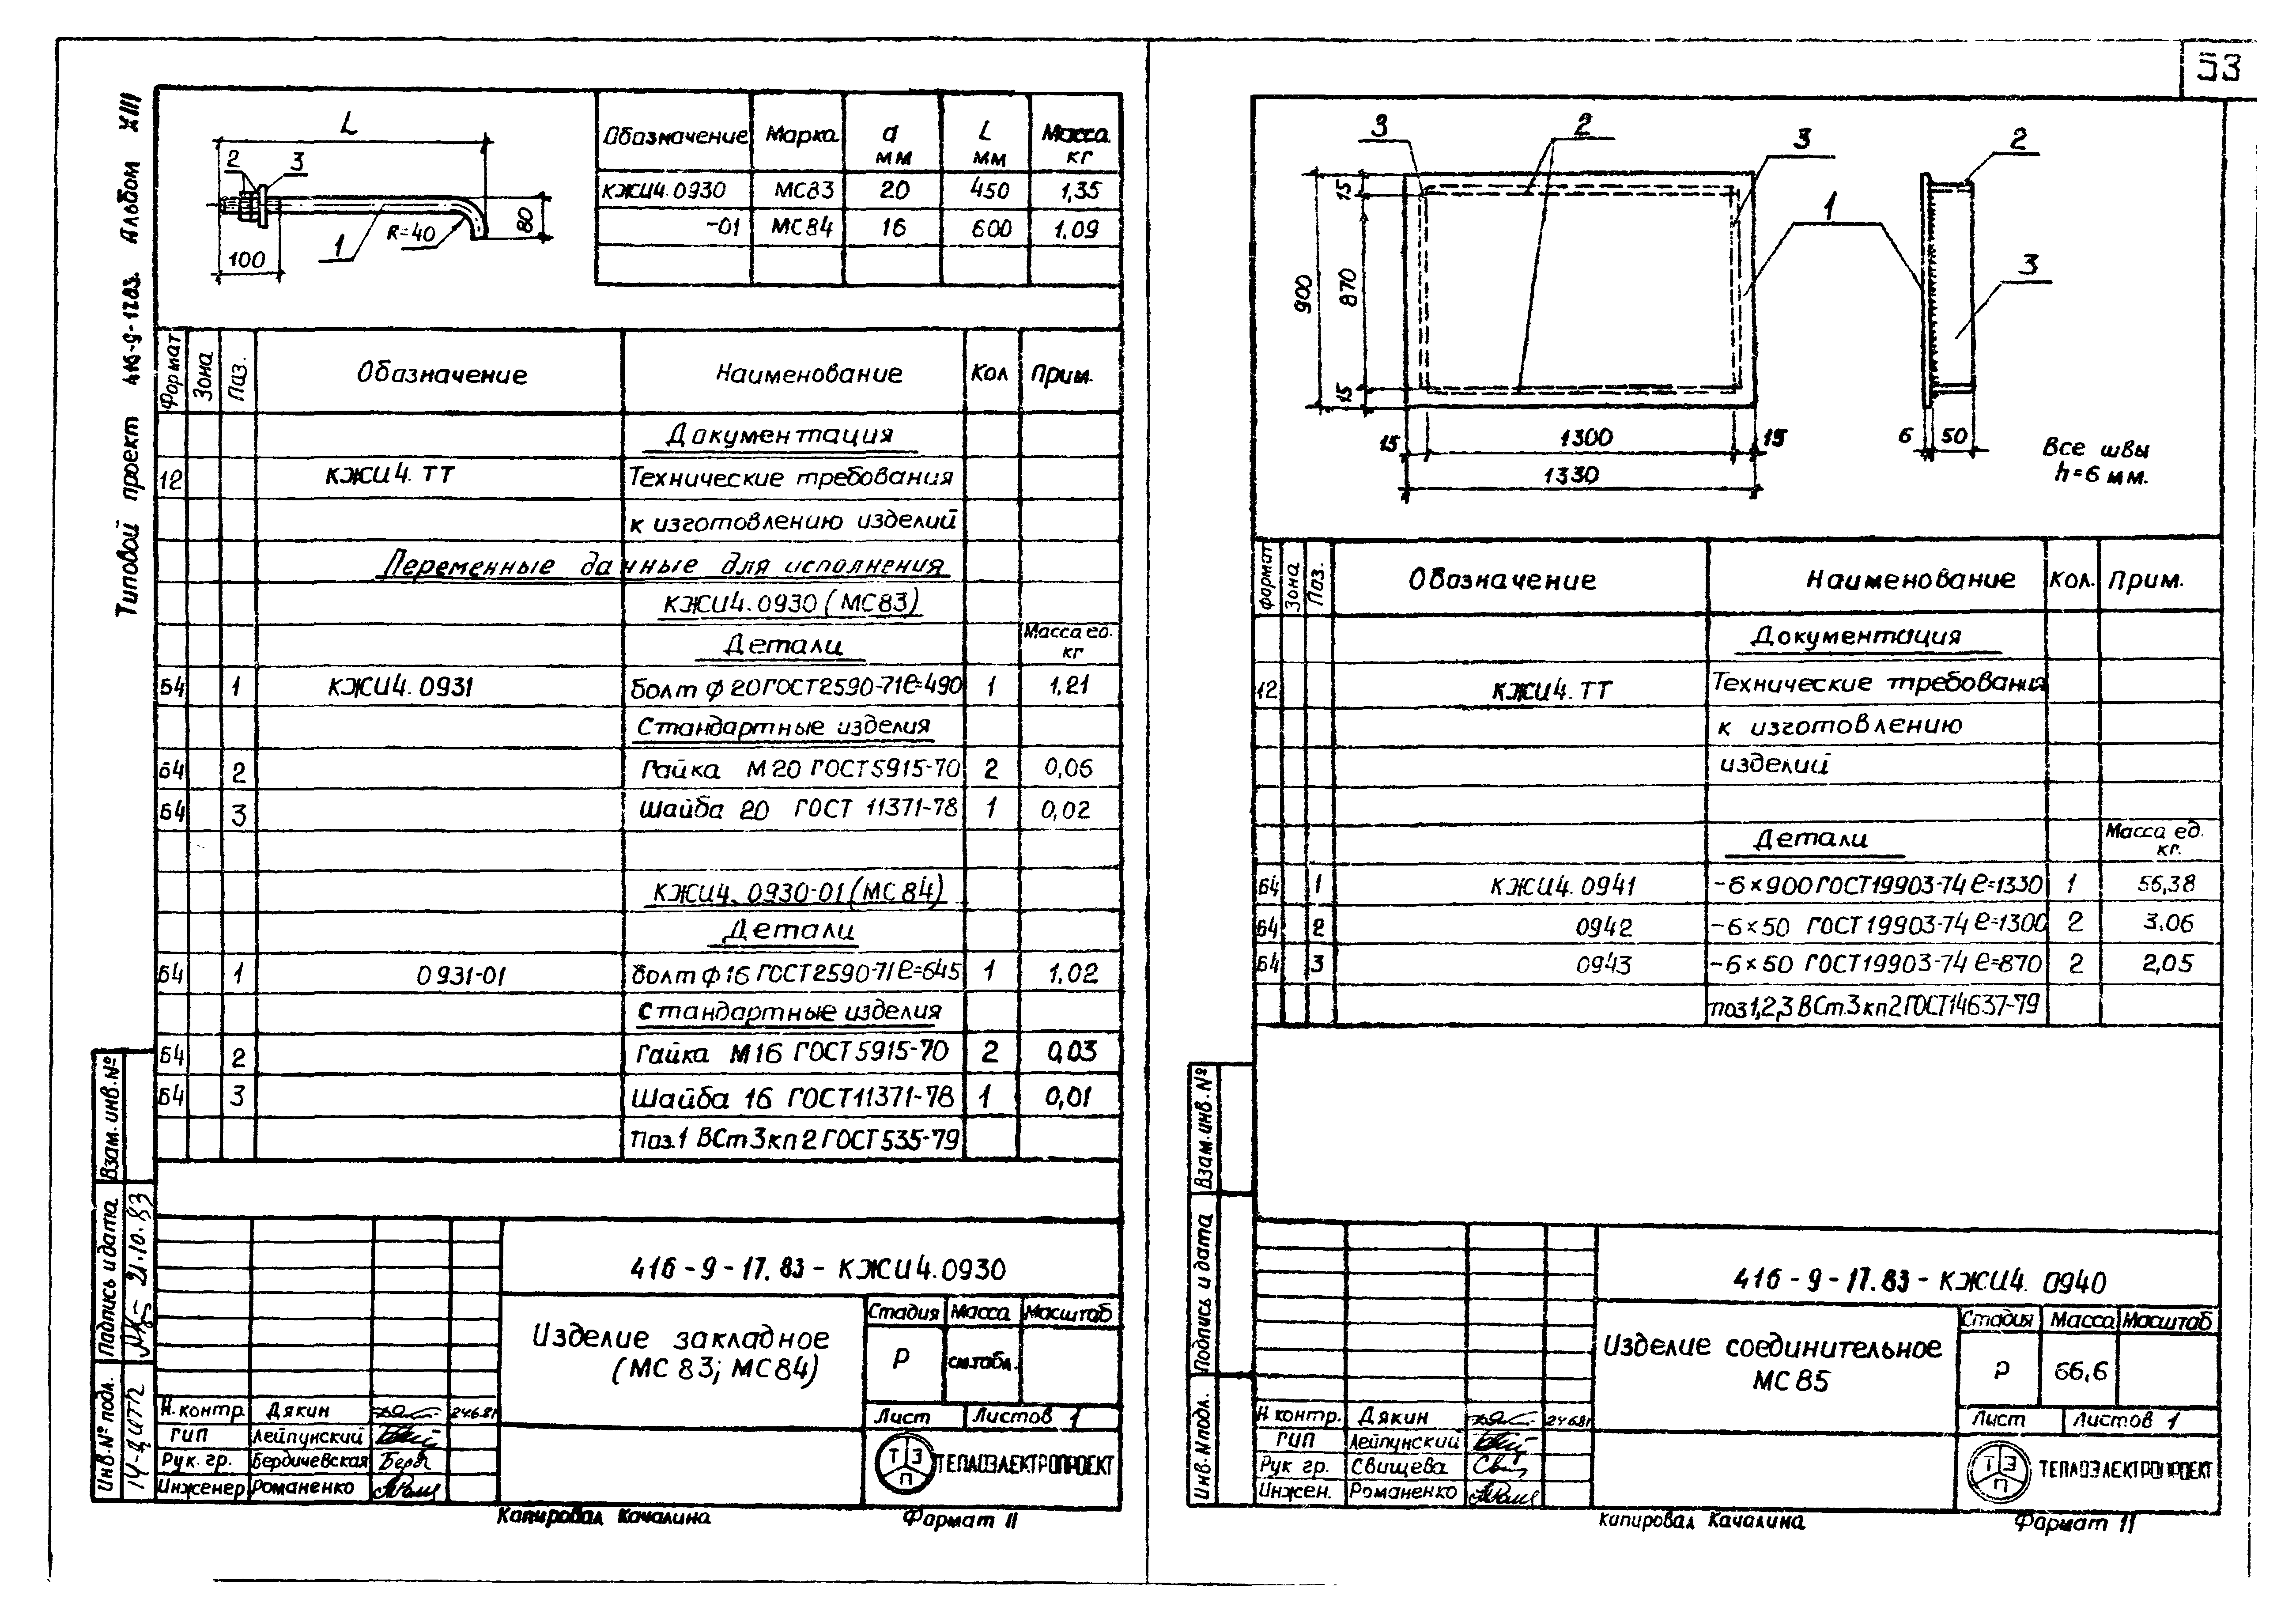 53
Типовой проект 416-9-17.83. Альбом XIII
L
2 3
1
R=40
80
100
Обозначение Марка d мм L мм Масса кг
КЖИ4.0930 МС83 20 450 1,35
-01 МС84 16 600 1,09
Формат Зона Поз. Обозначение Наименование Кол Прим.
Документация
12 КЖИ4.ТТ Технические требования
к изготовлению изделий
Переменные данные для исполнения
КЖИ4.0930 (МС83)
Детали Масса ед. кг
Б4 1 КЖИ4.0931 болт ф20 ГОСТ2590-71 ℓ=490 1 1,21
Стандартные изделия
Б4 2 Гайка М20 ГОСТ5915-70 2 0,06
Б4 3 Шайба 20 ГОСТ 11371-78 1 0,02
КЖИ4.0930-01 (МС84)
Детали
Б4 1 0931-01 болт ф16 ГОСТ2590-71 ℓ=645 1 1,02
Стандартные изделия
Б4 2 Гайка М16 ГОСТ5915-70 2 0,03
Б4 3 Шайба 16 ГОСТ11371-78 1 0,01
Поз.1 ВСт3кп2 ГОСТ535-79
Взам. инв. №
Подпись и дата 21.10.83
Инв. № подл.
416-9-17.83-КЖИ4.0930
Изделие закладное
(МС83; МС84)
Стадия Масса Масштаб
Р см.табл.
Лист Листов 1
Н.контр. Дякин 24.6.81
ГИП Лейпунский
Рук. гр. Бердичевская
Инженер Романенко
ТЭП ТЕПЛОЭЛЕКТРОПРОЕКТ
Копировал Качалина Формат 11
3 2 3
1
2
3
15
870
900
15
15 1300 15
1330
6 50
Все швы
h=6 мм.
Формат Зона Поз. Обозначение Наименование Кол. Прим.
Документация
12 КЖИ4.ТТ Технические требования
к изготовлению
изделий
Детали Масса ед. кг.
Б4 1 КЖИ4.0941 -6×900 ГОСТ19903-74 ℓ=1330 1 56,38
Б4 2 0942 -6×50 ГОСТ19903-74 ℓ=1300 2 3,06
Б4 3 0943 -6×50 ГОСТ19903-74 ℓ=870 2 2,05
поз1,2,3 ВСт3кп2 ГОСТ14637-79
Взам. инв. №
Подпись и дата
Инв. № подл.
416-9-17.83-КЖИ4.0940
Изделие соединительное
МС85
Стадия Масса Масштаб
Р 66,6
Лист Листов 1
Н контр. Дякин 24.6.81
ГИП Лейпунский
Рук гр. Свищева
Инжен. Романенко
ТЭП ТЕПЛОЭЛЕКТРОПРОЕКТ
Копировал Качалина Формат 11